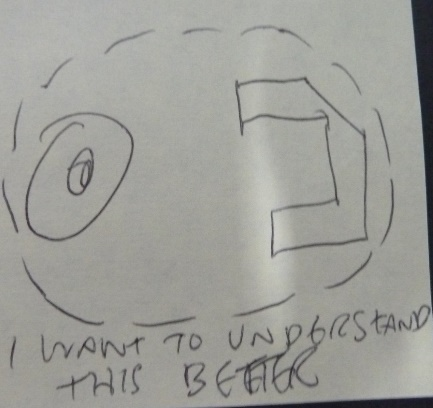 I WANT TO UNDERSTAND
THIS BETTER